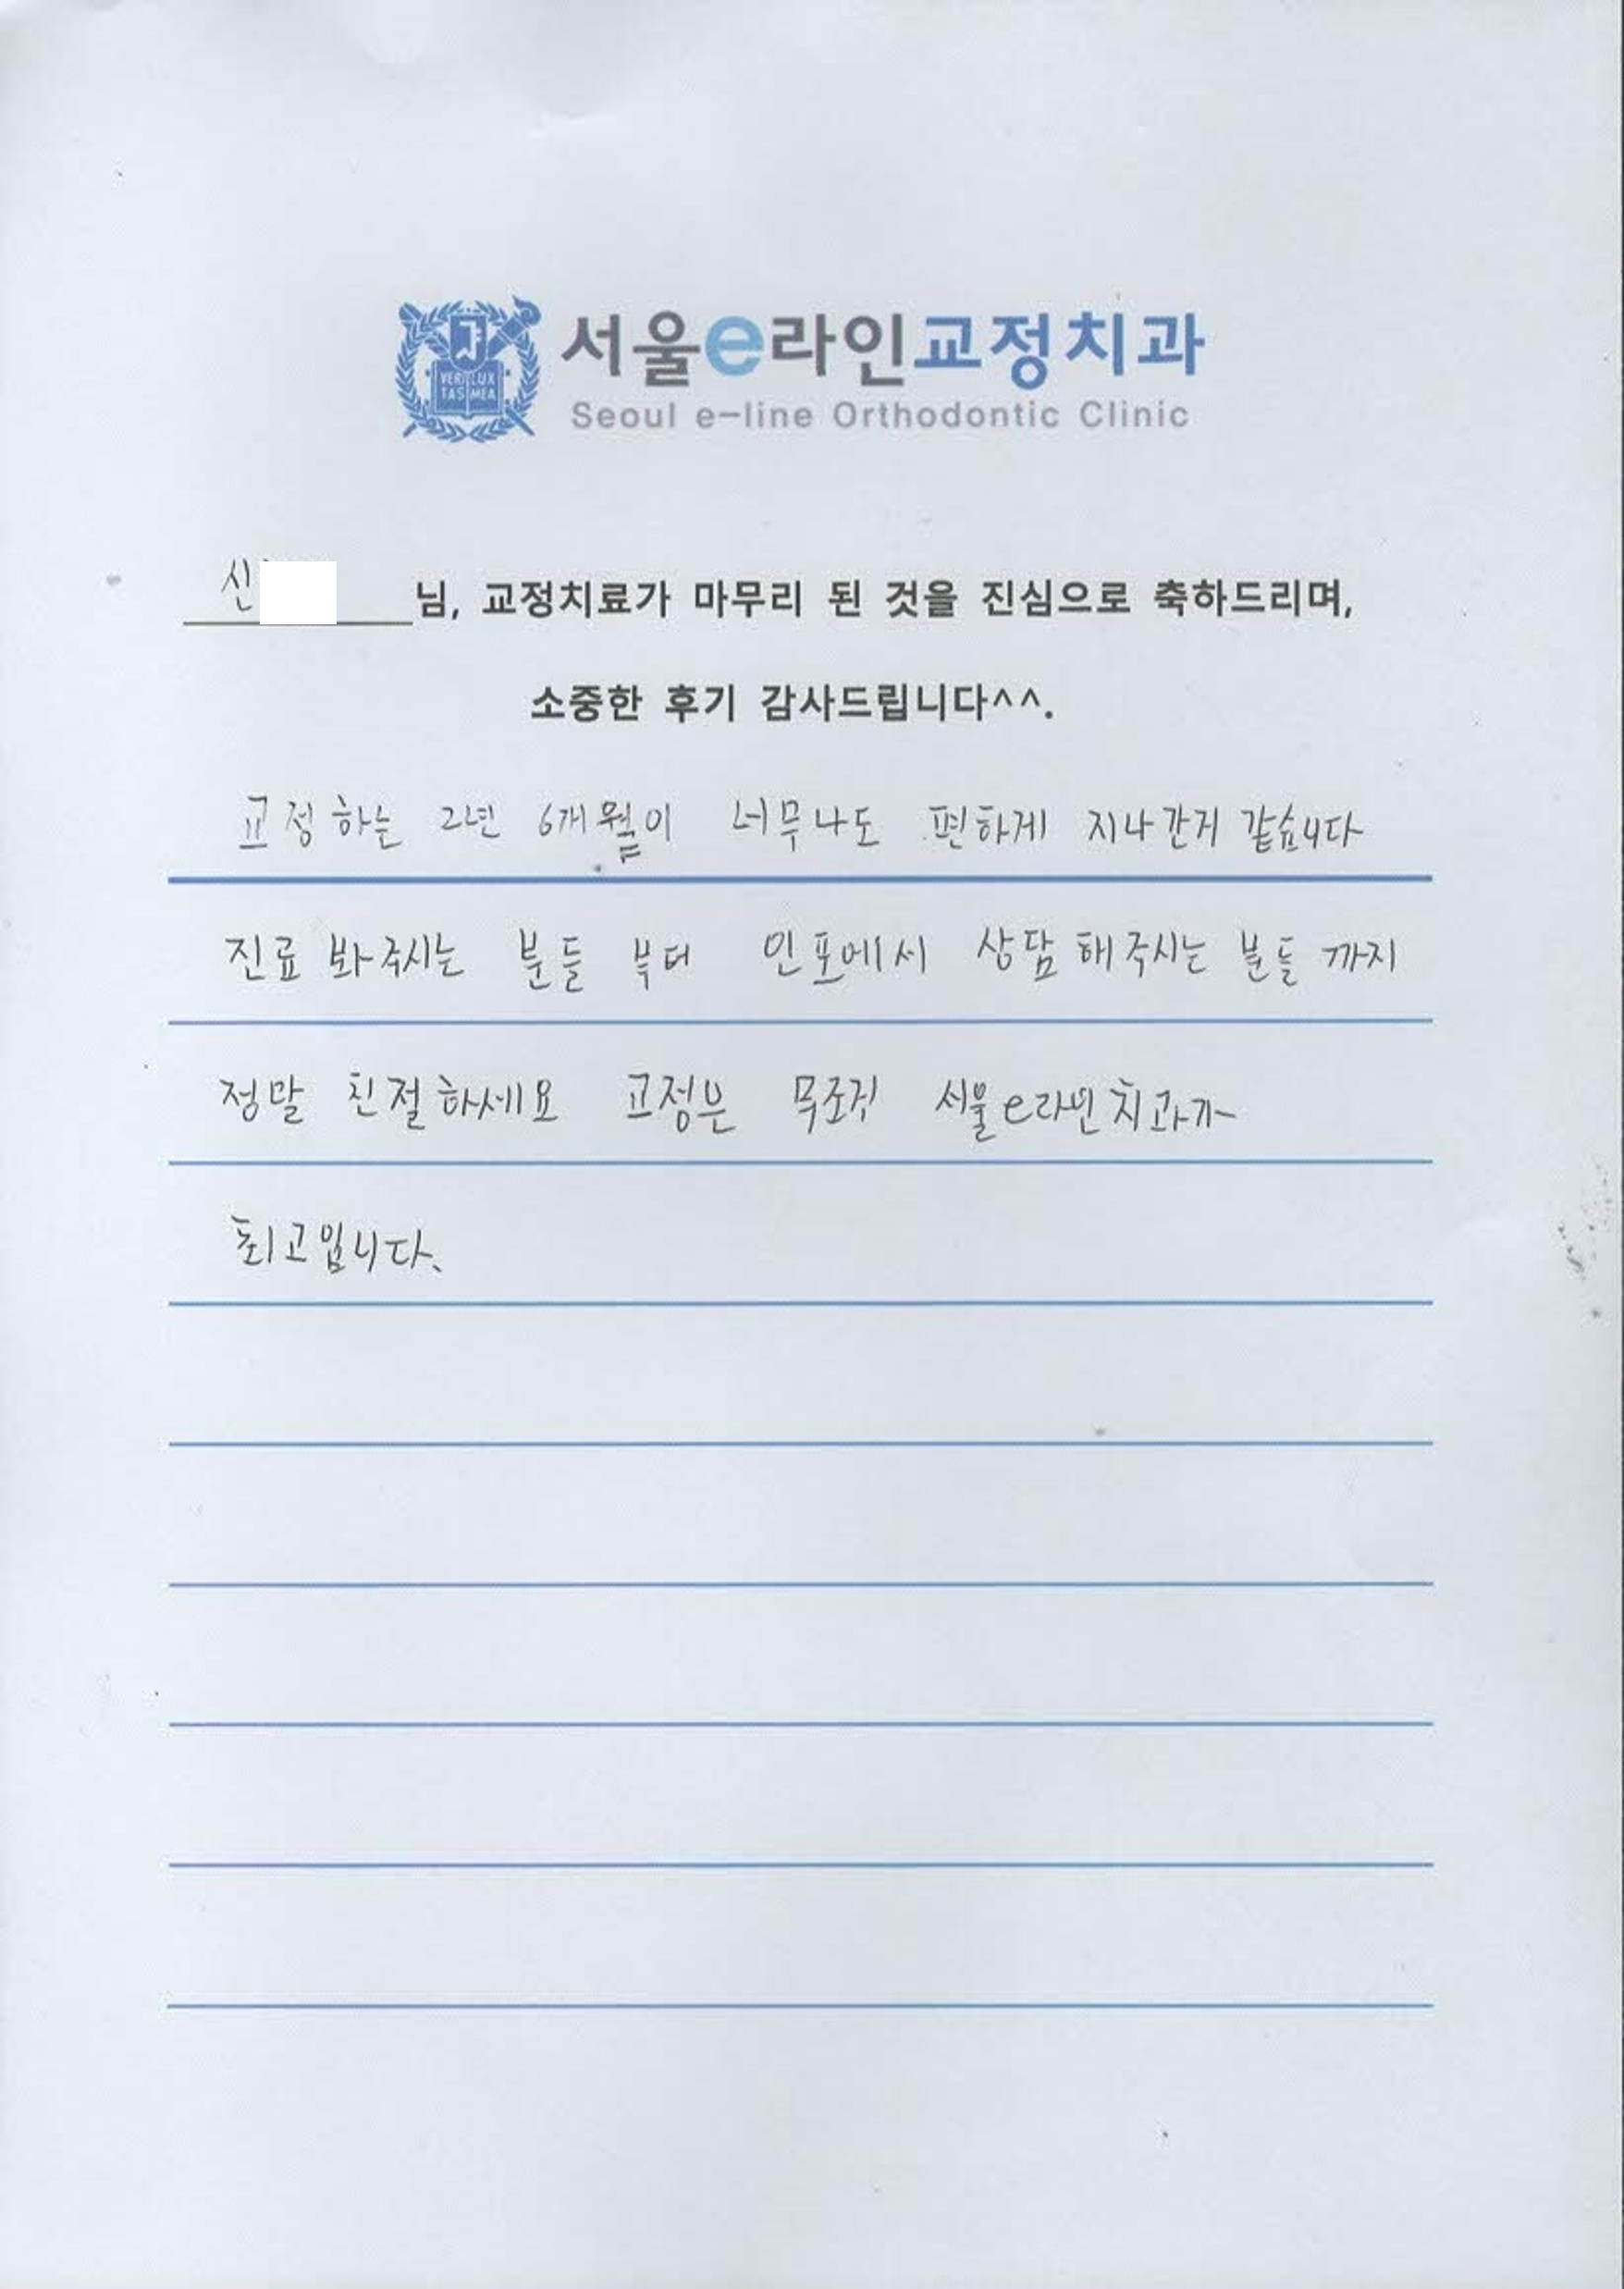 VERI LUX
TAS MEA
서울e라인교정치과
Seoul e-line Orthodontic Clinic
신 님, 교정치료가 마무리 된 것을 진심으로 축하드리며,
소중한 후기 감사드립니다^^.
교정하는 2년 6개월이 너무나도 편하게 지나간거 같습니다
진료 봐주시는 분들 부터 인포에서 상담 해주시는 분들 까지
정말 친절하세요 교정은 무조건 서울e라인치과가
최고입니다.